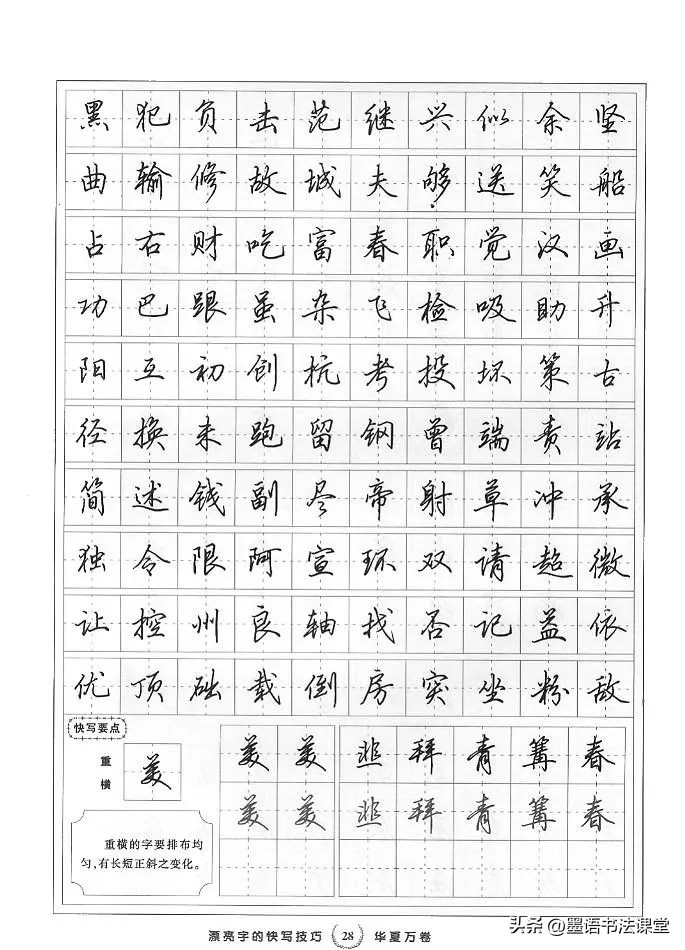 黑犯负击范继兴似余坚
曲输修故城夫够送笑船
占右财吃富春职觉汉画
功巴跟虽杂飞检吸助升
阳互初创抗考投坏策古
径换未跑留钢曾端责站
简述钱副尽帝射草冲承
独令限阿宣环双请超微
让控州良轴找否记益依
优顶础载倒房突坐粉敌
快写要点
重横 美
美美韭拜青篝春
美美韭拜青篝春
重横的字要排布均
匀,有长短正斜之变化。
漂亮字的快写技巧 28 华夏万卷
头条 @墨语书法课堂